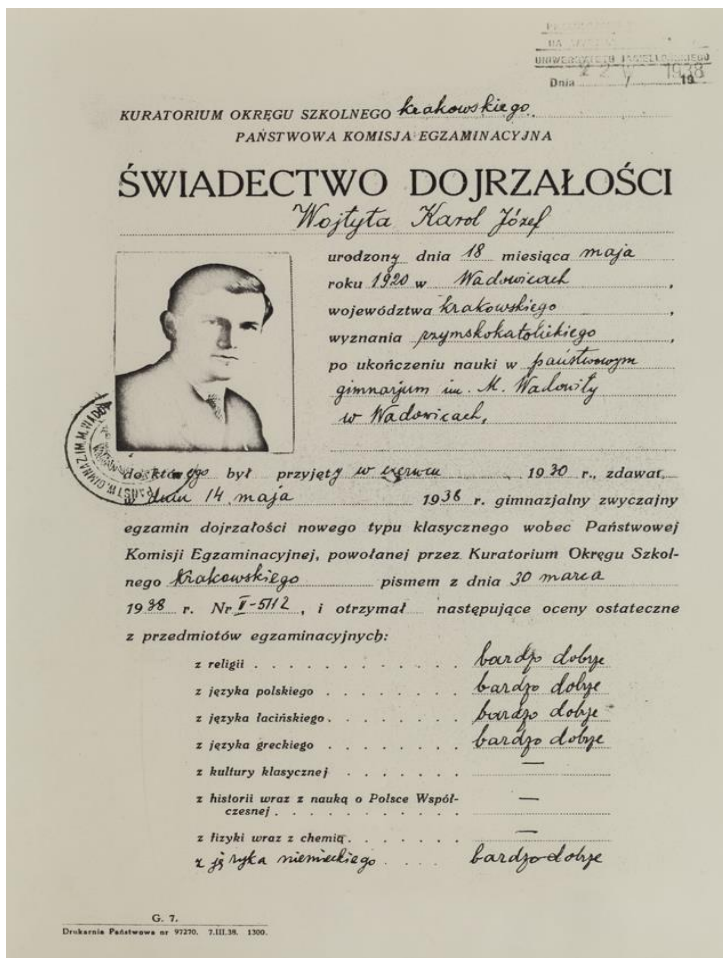 UNIWERSYTETU JAGIELLOŃSKIEGO
Dnia 2 V 1938 19
KURATORIUM OKRĘGU SZKOLNEGO krakowskiego
PAŃSTWOWA KOMISJA EGZAMINACYJNA
ŚWIADECTWO DOJRZAŁOŚCI
Wojtyła Karol Józef
urodzony dnia 18 miesiąca maja
roku 1920 w Wadowicach,
województwa krakowskiego,
wyznania rzymskokatolickiego,
po ukończeniu nauki w państwowym
gimnazjum im. M. Wadowity
w Wadowicach,
do którego był przyjęty w czerwcu 1930 r., zdawał,
w dniu 14 maja 1938 r. gimnazjalny zwyczajny
egzamin dojrzałości nowego typu klasycznego wobec Państwowej
Komisji Egzaminacyjnej, powołanej przez Kuratorium Okręgu Szkol-
nego Krakowskiego pismem z dnia 30 marca
1938 r. Nr II-5112, i otrzymał następujące oceny ostateczne
z przedmiotów egzaminacyjnych:
z religii . . . . . . . . . . . bardzo dobrze
z języka polskiego . . . . . . . bardzo dobrze
z języka łacińskiego . . . . . . bardzo dobrze
z języka greckiego . . . . . . . bardzo dobrze
z kultury klasycznej . . . . . . —
z historii wraz z nauką o Polsce Współ-
czesnej . . . . . . . . . . —
z fizyki wraz z chemią . . . . . —
z języka niemieckiego . . . . bardzo dobrze
G. 7.
Drukarnia Państwowa nr 97270. 7.III.38. 1300.